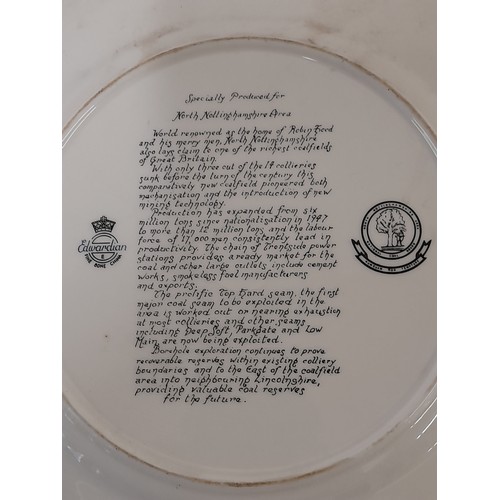 Specially Produced for
North Nottinghamshire Area
World renowned as the home of Robin Hood
and his merry men, North Nottinghamshire
also lays claim to one of the richest coalfields
of Great Britain.
With only three out of the 14 collieries
sunk before the turn of the century this
comparatively new coalfield pioneered both
mechanisation and the introduction of new
mining technology.
Production has expanded from six
million tons since nationalisation in 1947
to more than 12 million tons and the labour
force of 17,000 men consistently lead in
productivity. The chain of Trentside power
stations provides a ready market for the
coal and other large outlets include cement
works, smokeless fuel manufacturers
and exports.
The prolific Top Hard seam, the first
major coal seam to be exploited in the
area is worked out or nearing exhaustion
at most collieries and other seams
including Deep Soft, Parkgate and Low
Main, are now being exploited.
Borehole exploration continues to prove
recoverable reserves within existing colliery
boundaries and to the East of the coalfield
area into neighbouring Lincolnshire,
providing valuable coal reserves
for the future.
Edwardian
BONE CHINA